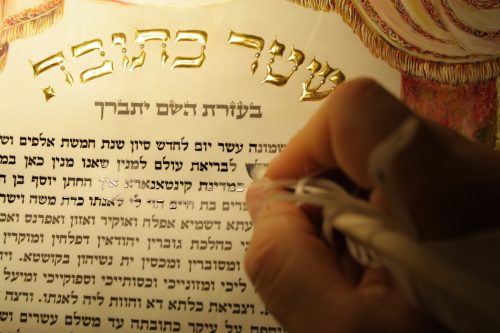 שטר כתובה
בעזרת השם יתברך
שמונה עשר יום לחדש סיון שנת חמשת אלפים וש
לבריאת עולם למנין שאנו מנין כאן במ
במדינת קינטאנארא איך החתן יוסף בן ה
בת חיים הוי לי לאנתו כדת משה וישר
עתא דשמיא אפלח ואוקיר ואזון ואפרנס ואכ
כהלכת גוברין יהודאין דפלחין ומוקרין
ומסוברין ומכסין ית נשיהון בקושטא. ויה
ליכי ומזונייכי וכסותייכי וספוקייכי ומיעל
וצביאת כלתא דא והוות ליה לאנתו. ורצה
על עיקר כתובתה עד משלם עשרים וש